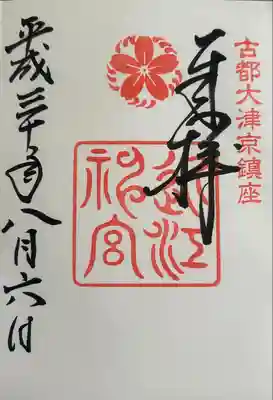 古都大津京鎮座
奉拝
近江神宮
平成三十年八月六日